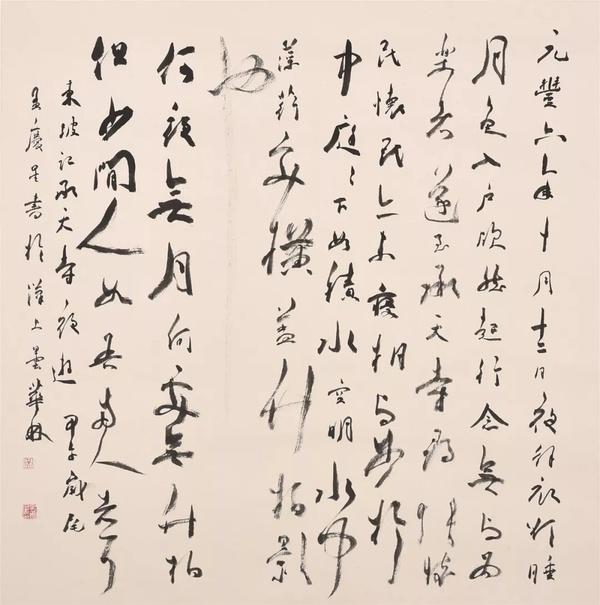 元豐六年十月十二日夜解衣欲睡
月色入户欣然起行念無与為
樂者遂至承天寺尋張懷
民懷民亦未寢相与步於
中庭々下如積水空明水中
藻荇交橫蓋竹柏影
也
何夜無月何處無竹柏
但少閒人如吾兩人者耳
東坡記承天寺夜遊 甲午歲尾
孟慶星書於漢上曇華林